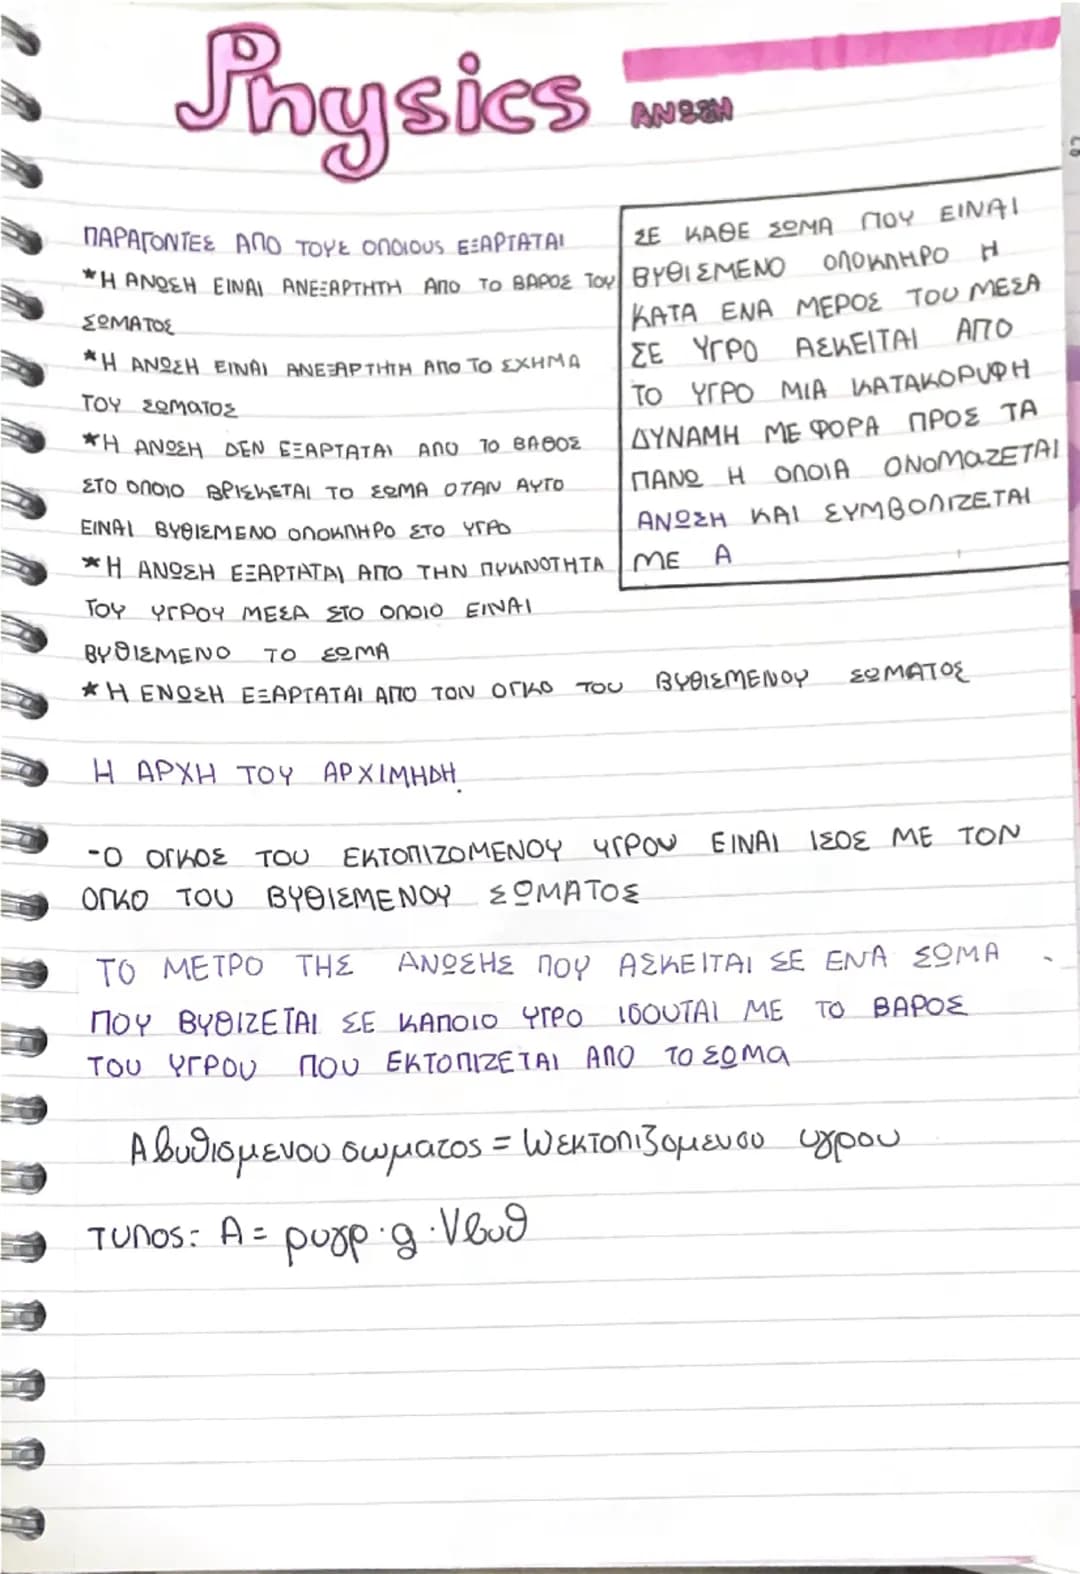 Physics
ΑΝΩΣΗ
ΠΑΡΑΓΟΝΤΕΣ ΑΠΟ ΤΟΥΣ ΟΠΟΙΟUS ΕΞΑΡΤΑΤΑΙ
*Η ΑΝΩΣΗ ΕΙΝΑΙ ΑΝΕΞΑΡΤΗΤΗ ΑΠΟ ΤΟ ΒΑΡΟΣ ΤΟΥ
ΣΩΜΑΤΟΣ
*Η ΑΝΩΣΗ ΕΙΝΑΙ ΑΝΕΞΑΡΤΗΤΗ ΑΠΟ ΤΟ ΣΧΗΜΑ
ΤΟΥ ΣΩΜΑΤΟΣ
*Η ΑΝΩΣΗ ΔΕΝ ΕΞΑΡΤΑΤΑΙ ΑΠΟ ΤΟ ΒΑΘΟΣ
ΣΤΟ ΟΠΟΙΟ ΒΡΙΣΚΕΤΑΙ ΤΟ ΣΩΜΑ ΟΤΑΝ ΑΥΤΟ
ΕΙΝΑΙ ΒΥΘΙΣΜΕΝΟ ΟΛΟΚΛΗΡΟ ΣΤΟ ΥΓΡΟ
*Η ΑΝΩΣΗ ΕΞΑΡΤΑΤΑΙ ΑΠΟ ΤΗΝ ΠΥΚΝΟΤΗΤΑ
ΤΟΥ ΥΓΡΟΥ ΜΕΣΑ ΣΤΟ ΟΠΟΙΟ ΕΙΝΑΙ
ΒΥΘΙΣΜΕΝΟ ΤΟ ΣΩΜΑ
*Η ΕΝΩΣΗ ΕΞΑΡΤΑΤΑΙ ΑΠΟ ΤΟΝ ΟΓΚΟ ΤΟU ΒΥΘΙΣΜΕΝΟΥ ΣΩΜΑΤΟΣ
ΣΕ ΚΑΘΕ ΣΩΜΑ ΠΟΥ ΕΙΝΑΙ
ΒΥΘΙΣΜΕΝΟ ΟΛΟΚΛΗΡΟ Η
ΚΑΤΑ ΕΝΑ ΜΕΡΟΣ ΤΟU ΜΕΣΑ
ΣΕ ΥΓΡΟ ΑΣΚΕΙΤΑΙ ΑΠΟ
ΤΟ ΥΓΡΟ ΜΙΑ ΚΑΤΑΚΟΡΥΦΗ
ΔΥΝΑΜΗ ΜΕ ΦΟΡΑ ΠΡΟΣ ΤΑ
ΠΑΝΩ Η ΟΠΟΙΑ ΟΝΟΜΑΖΕΤΑΙ
ΑΝΩΣΗ ΚΑΙ ΣΥΜΒΟΛΙΖΕΤΑΙ
ΜΕ Α
Η ΑΡΧΗ ΤΟΥ ΑΡΧΙΜΗΔΗ.
-Ο ΟΓΚΟΣ ΤΟU ΕΚΤΟΠΙΖΟΜΕΝΟΥ ΥΓΡΟU ΕΙΝΑΙ ΙΣΟΣ ΜΕ ΤΟΝ
ΟΓΚΟ ΤΟU ΒΥΘΙΣΜΕΝΟΥ ΣΩΜΑΤΟΣ
ΤΟ ΜΕΤΡΟ ΤΗΣ ΑΝΩΣΗΣ ΠΟΥ ΑΣΚΕΙΤΑΙ ΣΕ ΕΝΑ ΣΩΜΑ
ΠΟΥ ΒΥΘΙΖΕΤΑΙ ΣΕ ΚΑΠΟΙΟ ΥΓΡΟ ΙσΟUΤΑΙ ΜΕ ΤΟ ΒΑΡΟΣ
ΤΟU ΥΓΡΟU ΠΟU ΕΚΤΟΠΙΖΕΤΑΙ ΑΠΟ ΤΟ ΣΩΜΑ
Αβυθισμενου σωματος = WεΚΤΟΠΙζομενου υγρου
ΤΥΠΟΣ: Α = ρυγρ·g·Vβυθ